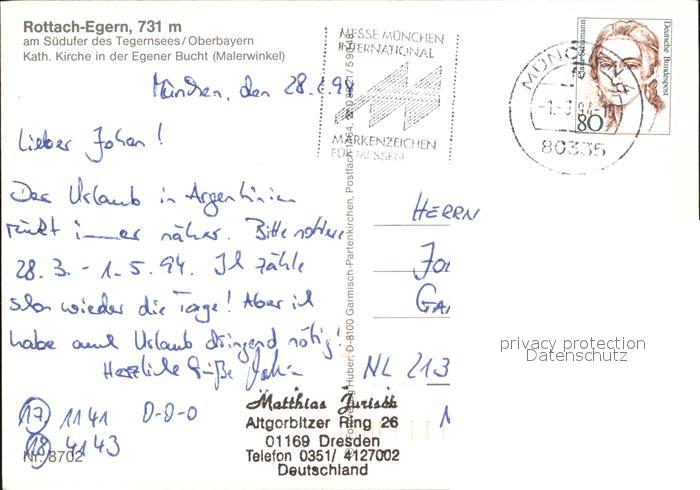 Rottach-Egern, 731 m
am Südufer des Tegernsees/Oberbayern
Kath. Kirche in der Egener Bucht (Malerwinkel)
MESSE MÜNCHEN
INTERNATIONAL
MARKENZEICHEN
FÜR MESSEN
Deutsche Bundespost
80
MÜNCHEN
94-19
80335
München, den 28.2.94
Lieber Johan!
Der Urlaub in Argentinien
rückt immer näher. Bitte notiere
28.3. - 1.5.94. Ich zähle
schon wieder die Tage! Aber ich
habe auch Urlaub dringend nötig!
Herzliche Grüße
17 1141 0-0-0
18 4143
Nr. 8702
Huber, D-8100 Garmisch-Partenkirchen, Postfach
HERRN
Jo
GA
NL 213
Matthias Jurisch
Altgorbitzer Ring 26
01169 Dresden
Telefon 0351/ 4127002
Deutschland
privacy protection
Datenschutz